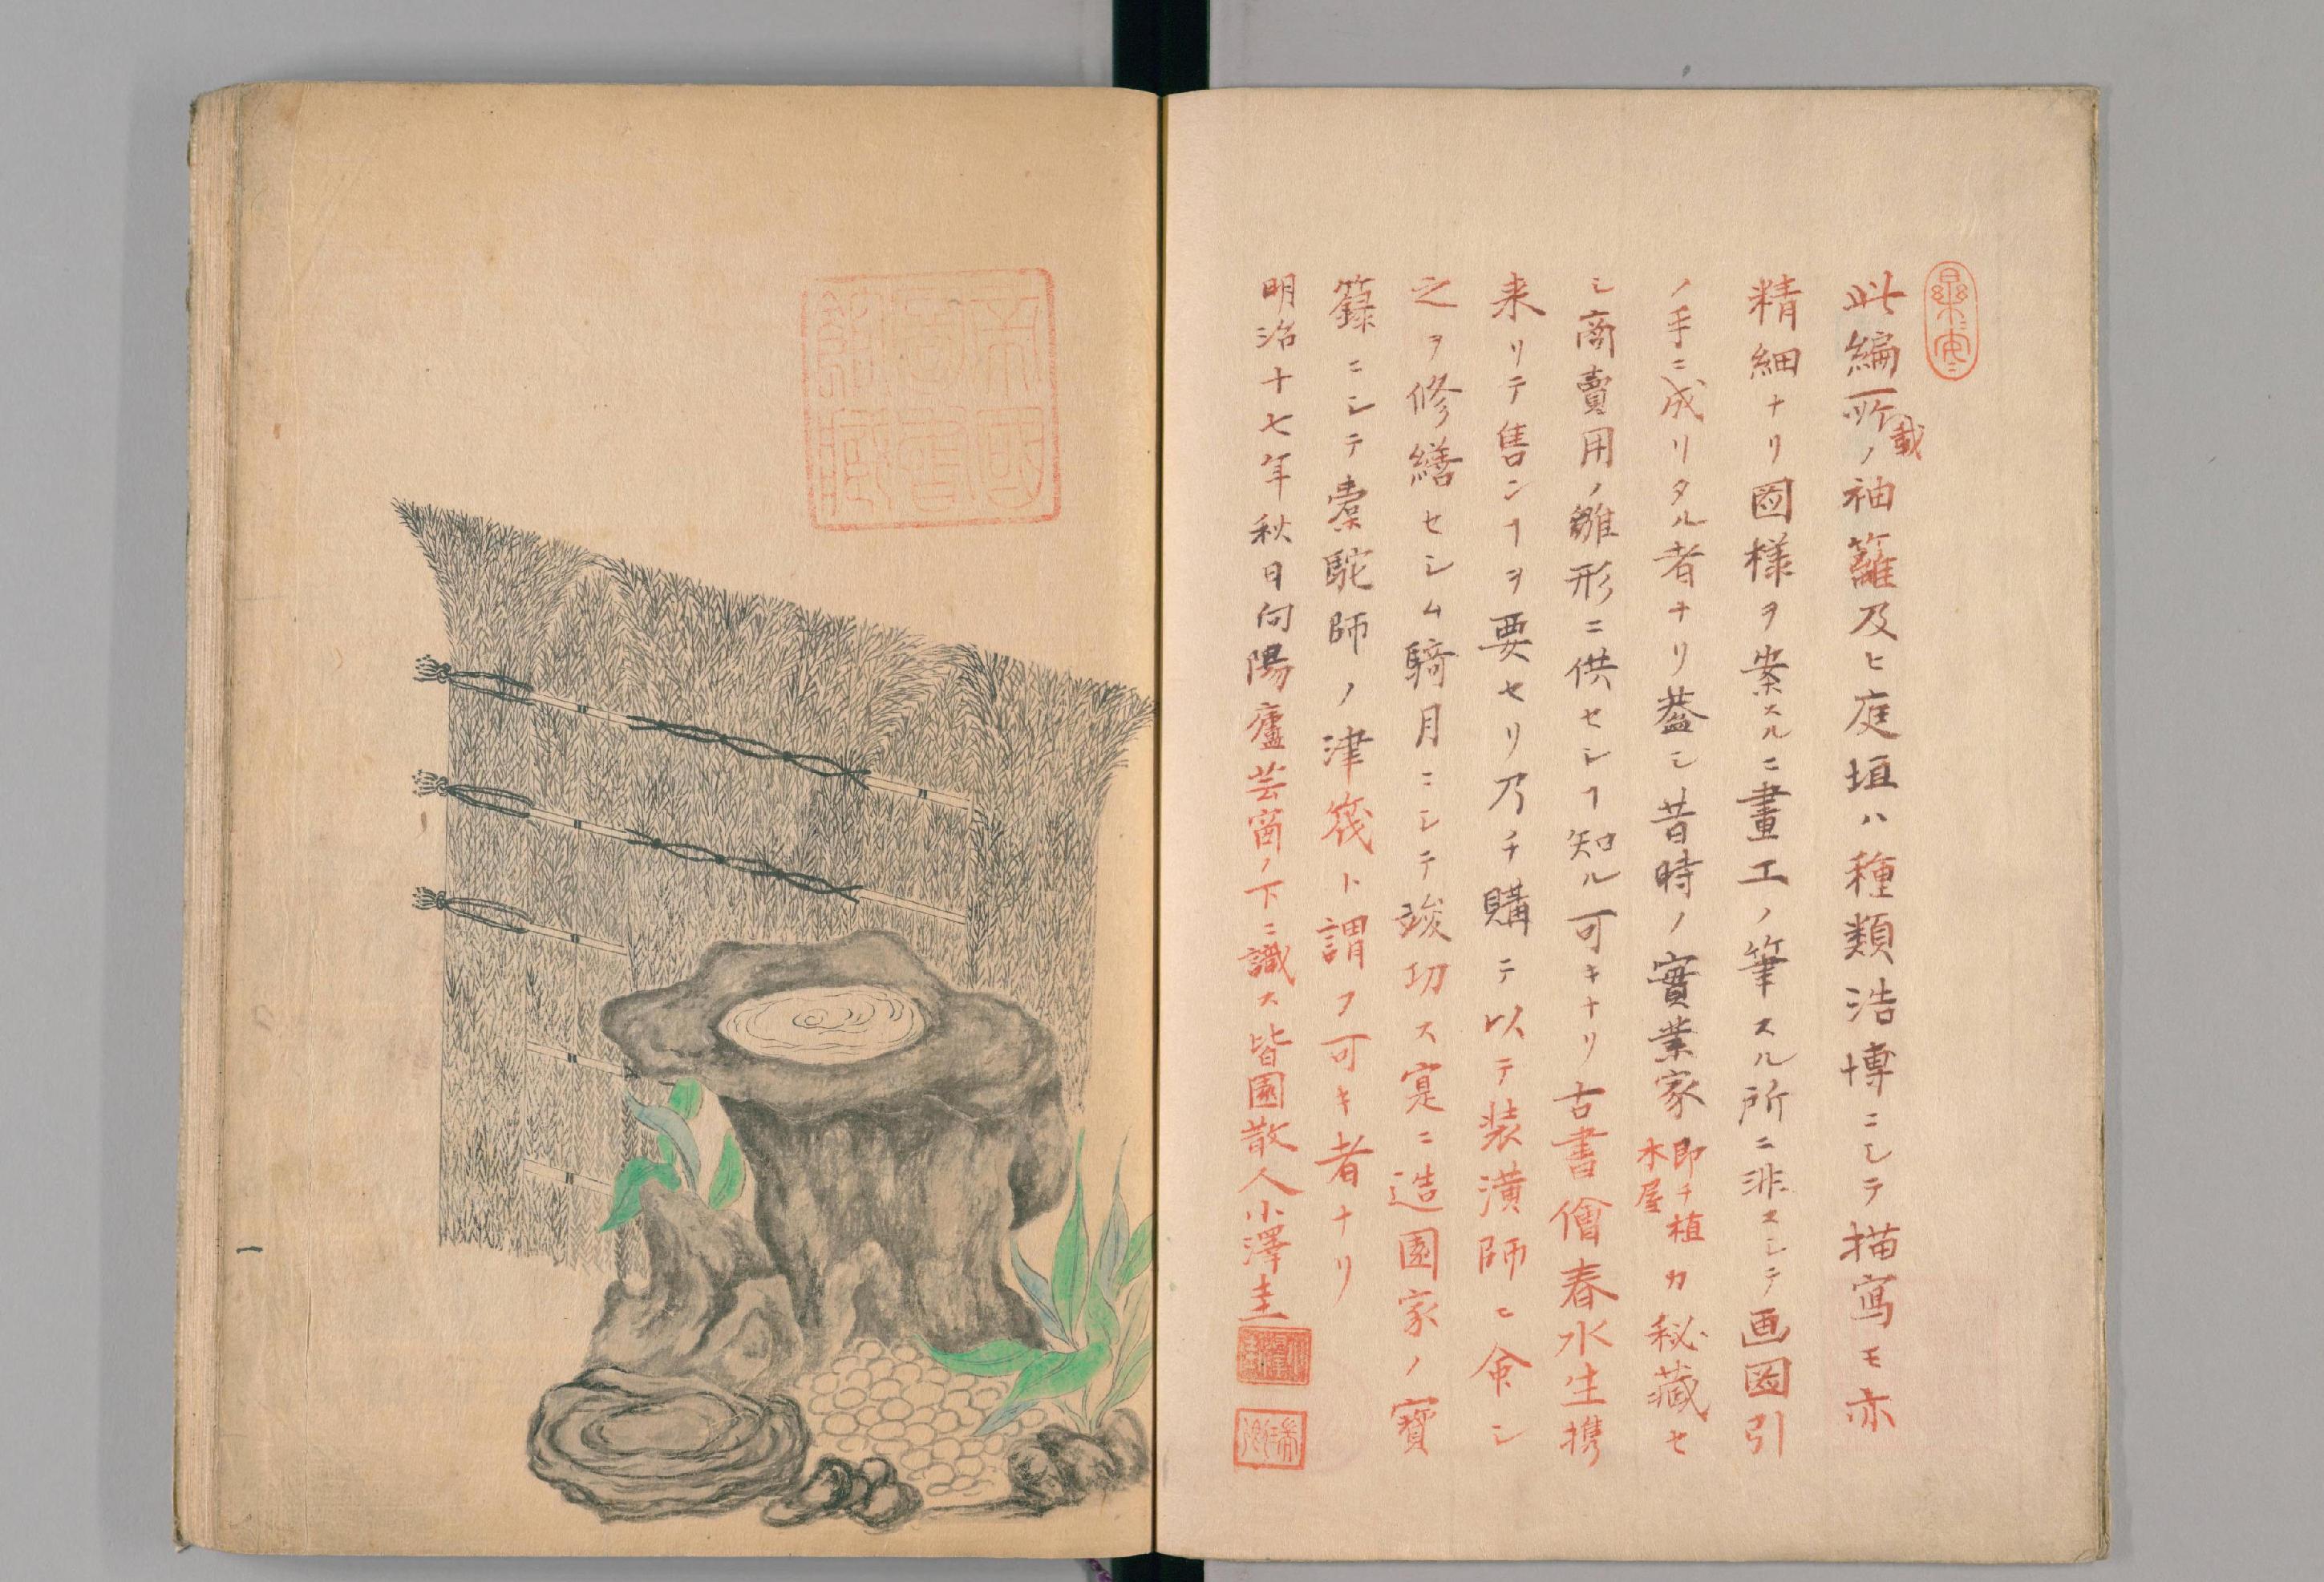 此編所載ノ袖籬及ヒ庭垣ハ種類浩博ニシテ描寫モ亦
精細ナリ図様ヲ案スルニ畫工ノ筆スル所ニ非スシテ画図引
ノ手ニ成リタル者ナリ葢シ昔時ノ實業家
即チ植
木屋
カ秘蔵セ
シ商賣用ノ雛形ニ供セシヿ知ル可キナリ古書儈春水生携
来リテ售ンヿヲ要セリ乃チ購テ以テ装潢師ニ命シ
之ヲ修繕セシム騎月ニシテ竣功ス寔ニ造園家ノ寶
籙ニシテ槖駝師ノ津筏ト謂フ可キ者ナリ
明治十七年秋日向陽廬芸窗ノ下ニ識ス皆園散人小澤圭
帝國
圖書
館藏